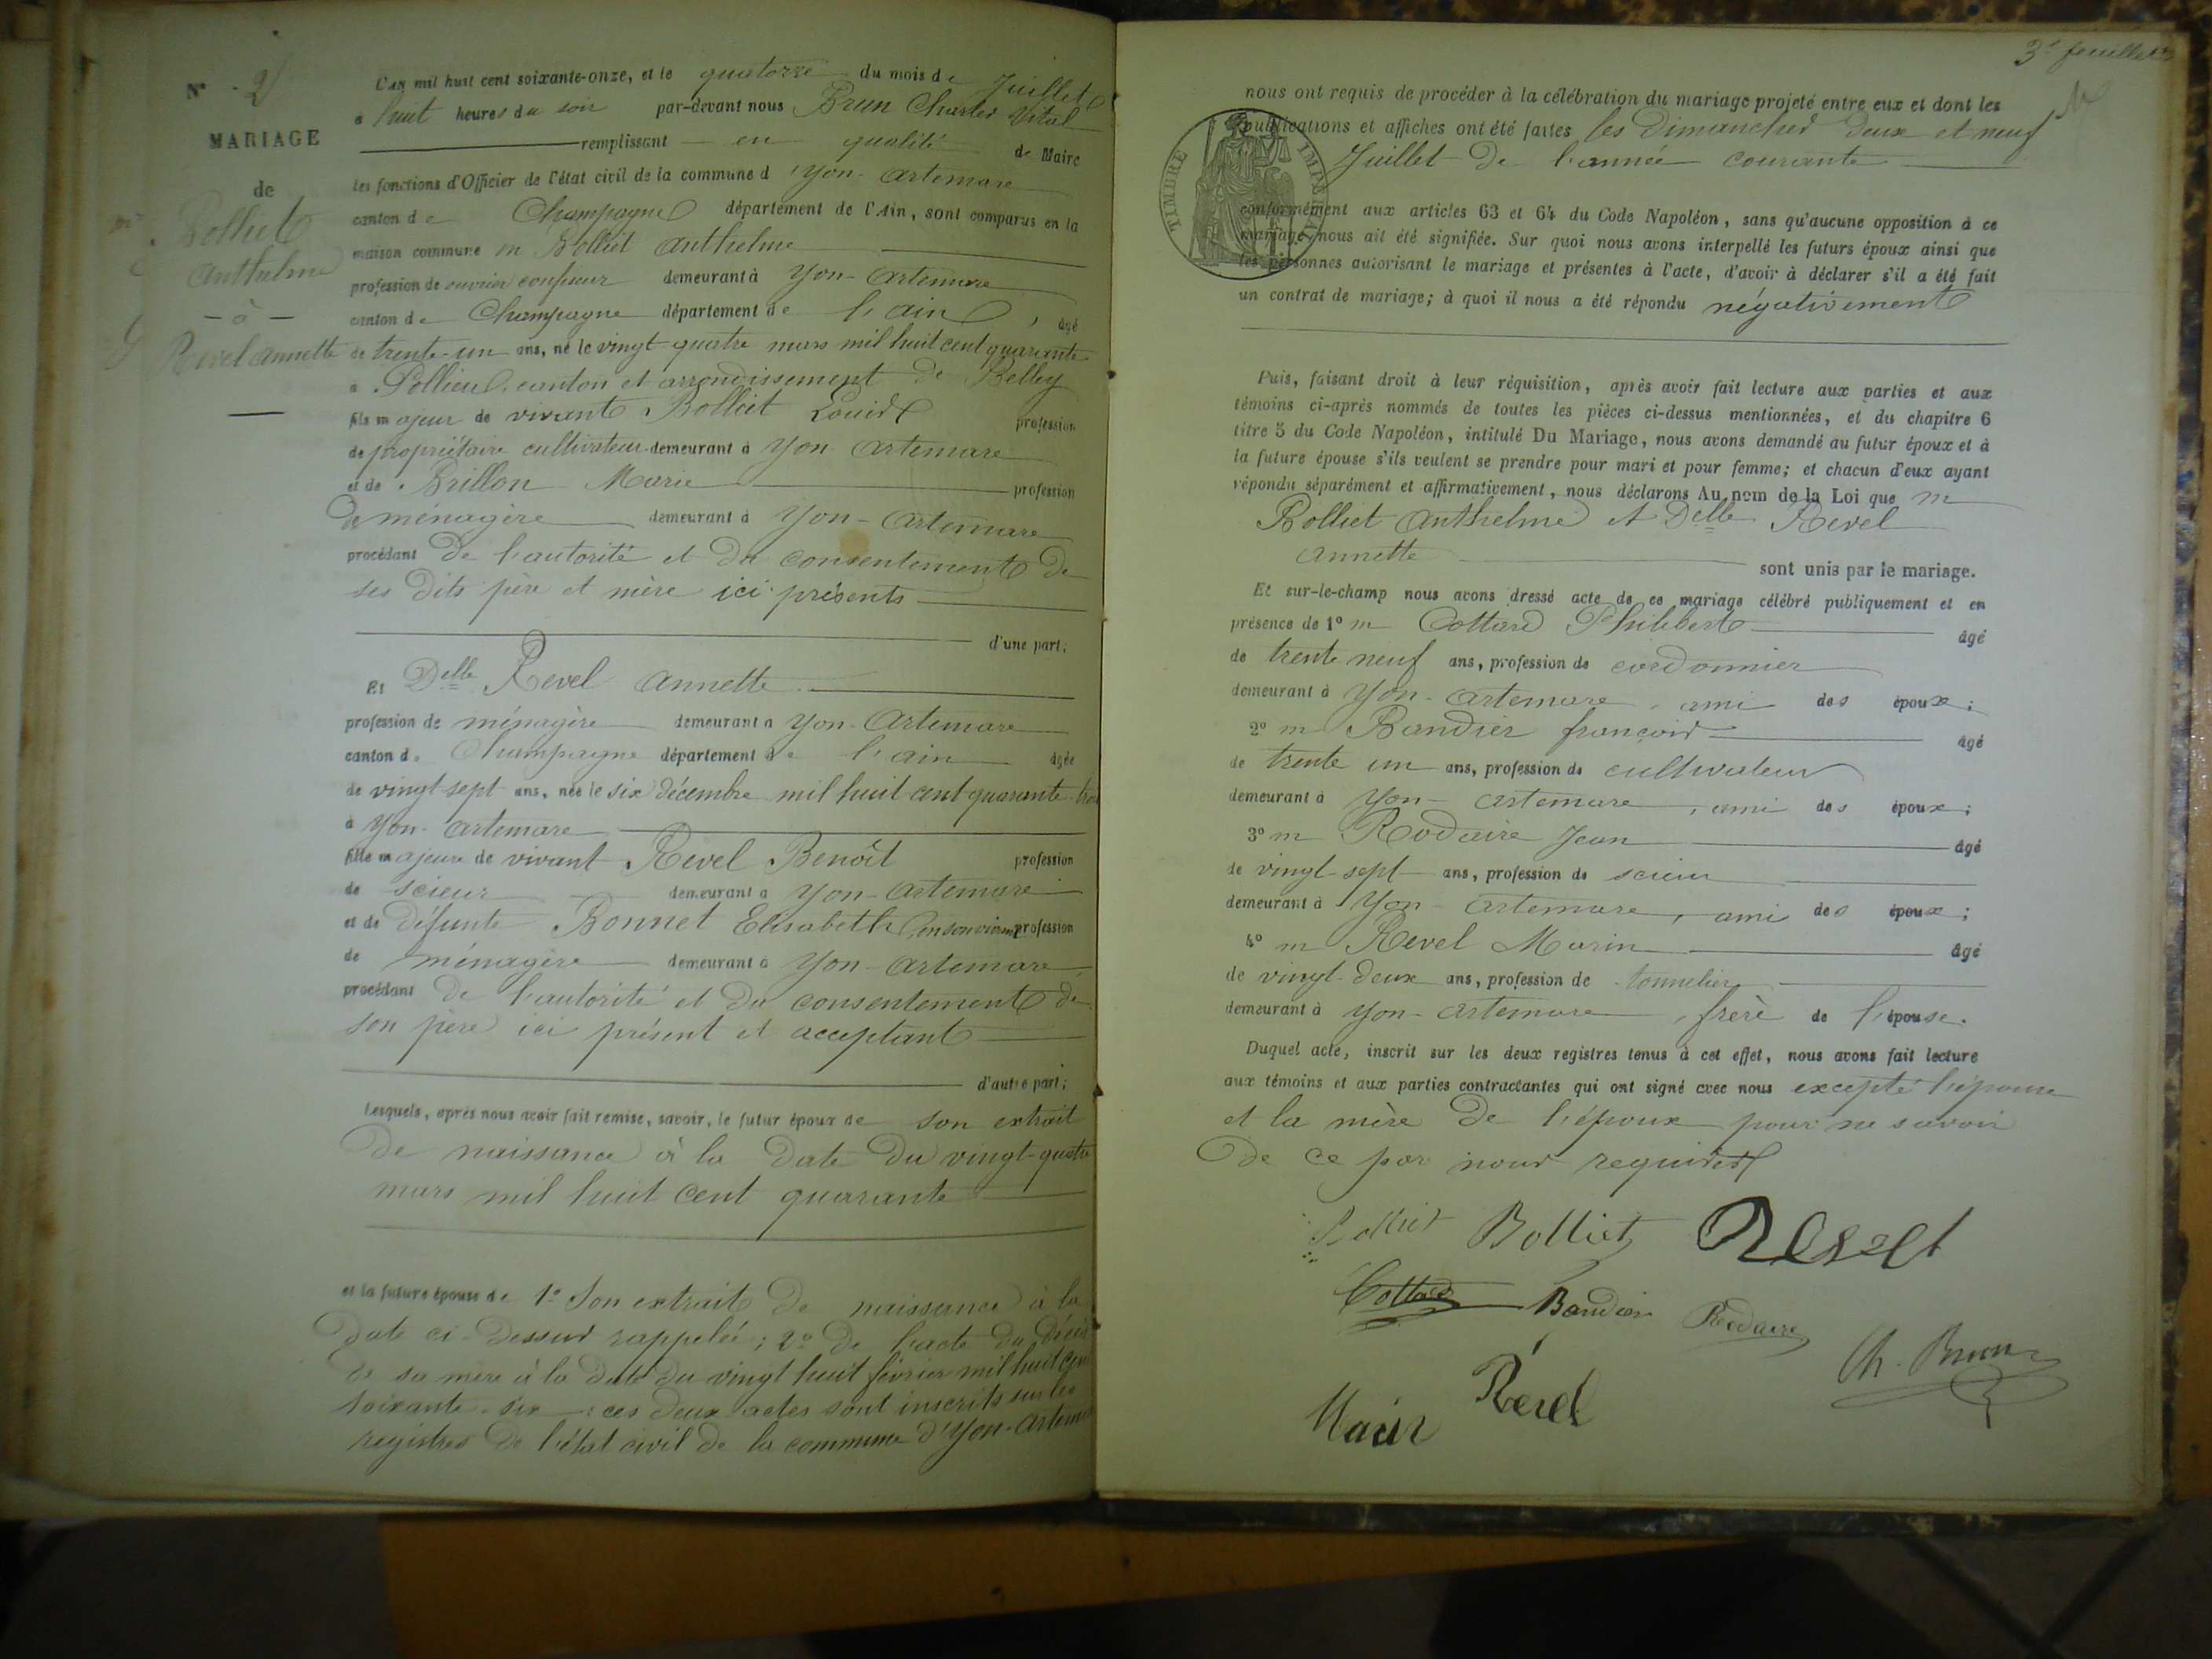 N° 2
MARIAGE
de
Bolliet
Anthelme
- à -
Revel Annette
L'AN mil huit cent soixante-onze, et le quatorze du mois de Juillet
à huit heures du soir par-devant nous Brun Charles Vital
remplissant en qualité de Maire
les fonctions d'Officier de l'état civil de la commune d'Yon-Artemare
canton de Champagne département de l'Ain, sont comparus en la
maison commune m Bolliet Anthelme
profession de ouvrier demeurant à Yon-Artemare
canton de Champagne département de l'ain, âgé
de trente-un ans, né le vingt-quatre mars mil huit cent quarante
à Pollieu, canton et arrondissement de Belley
fils majeur de vivants Bolliet Louis profession
de propriétaire cultivateur demeurant à Yon Artemare
et de Brillon Marie profession
De ménagère demeurant à Yon-Artemare
procédant De l'autorité et Du consentement De
ses Dits père et mère ici présents
d'une part;
Et Delle Revel Annette
profession de ménagère demeurant à Yon-Artemare
canton de Champagne département de l'ain âgée
de vingt-sept ans, née le six décembre mil huit cent quarante-trois
à Yon-Artemare
fille majeure de vivant Revel Benoît profession
de scieur demeurant à Yon-Artemare
et de Défunte Bonnet Elisabeth en son vivant profession
de ménagère demeurant à Yon-Artemare
procédant De l'autorité et Du consentement de
son père ici présent et acceptant
d'autre part;
Lesquels, après nous avoir fait remise, savoir, le futur époux de son extrait
De naissance à la Date Du vingt-quatre
mars mil huit cent quarante
et la future épouse de 1° Son extrait De naissance à la
Date ci-Dessus rappelée; 2° De l'acte Du Décès
De sa mère à la Date du vingt huit février mil huit cent
soixante-six; ces Deux actes sont inscrits sur les
registres De l'état civil De la commune d'Yon-Artemare
3e feuillet
nous ont requis de procéder à la célébration du mariage projeté entre eux et dont les
publications et affiches ont été faites les Dimanches Deux et neuf
Juillet De l'année courante
TIMBRE IMPÉRIAL
conformément aux articles 63 et 64 du Code Napoléon, sans qu'aucune opposition à ce
mariage nous ait été signifiée. Sur quoi nous avons interpellé les futurs époux ainsi que
les personnes autorisant le mariage et présentes à l'acte, d'avoir à déclarer s'il a été fait
un contrat de mariage; à quoi il nous a été répondu négativement
Puis, faisant droit à leur réquisition, après avoir fait lecture aux parties et aux
témoins ci-après nommés de toutes les pièces ci-dessus mentionnées, et du chapitre 6
titre 5 du Code Napoléon, intitulé Du Mariage, nous avons demandé au futur époux et à
la future épouse s'ils veulent se prendre pour mari et pour femme; et chacun d'eux ayant
répondu séparément et affirmativement, nous déclarons Au nom de la Loi que m
Bolliet Anthelme et Delle Revel
Annette sont unis par le mariage.
Et sur-le-champ nous avons dressé acte de ce mariage célébré publiquement et en
présence de 1° m Cottard Philibert âgé
de trente neuf ans, profession de cordonnier
demeurant à Yon-Artemare, ami des époux;
2° m Bandier françois âgé
de trente un ans, profession de cultivateur
demeurant à Yon-Artemare, ami des époux;
3° m Rodaire Jean âgé
de vingt-sept ans, profession de scieur
demeurant à Yon-Artemare, ami des époux;
4° m Revel Marin âgé
de vingt-Deux ans, profession de tonnelier
demeurant à Yon-Artemare, frère de l'épouse.
Duquel acte, inscrit sur les deux registres tenus à cet effet, nous avons fait lecture
aux témoins et aux parties contractantes qui ont signé avec nous excepté l'épouse
et la mère De l'époux pour ne savoir
De ce par nous requises
Bolliet Bolliet Revel
Cottard Bandier Rodaire
Ch. Brun
Revel
Marin